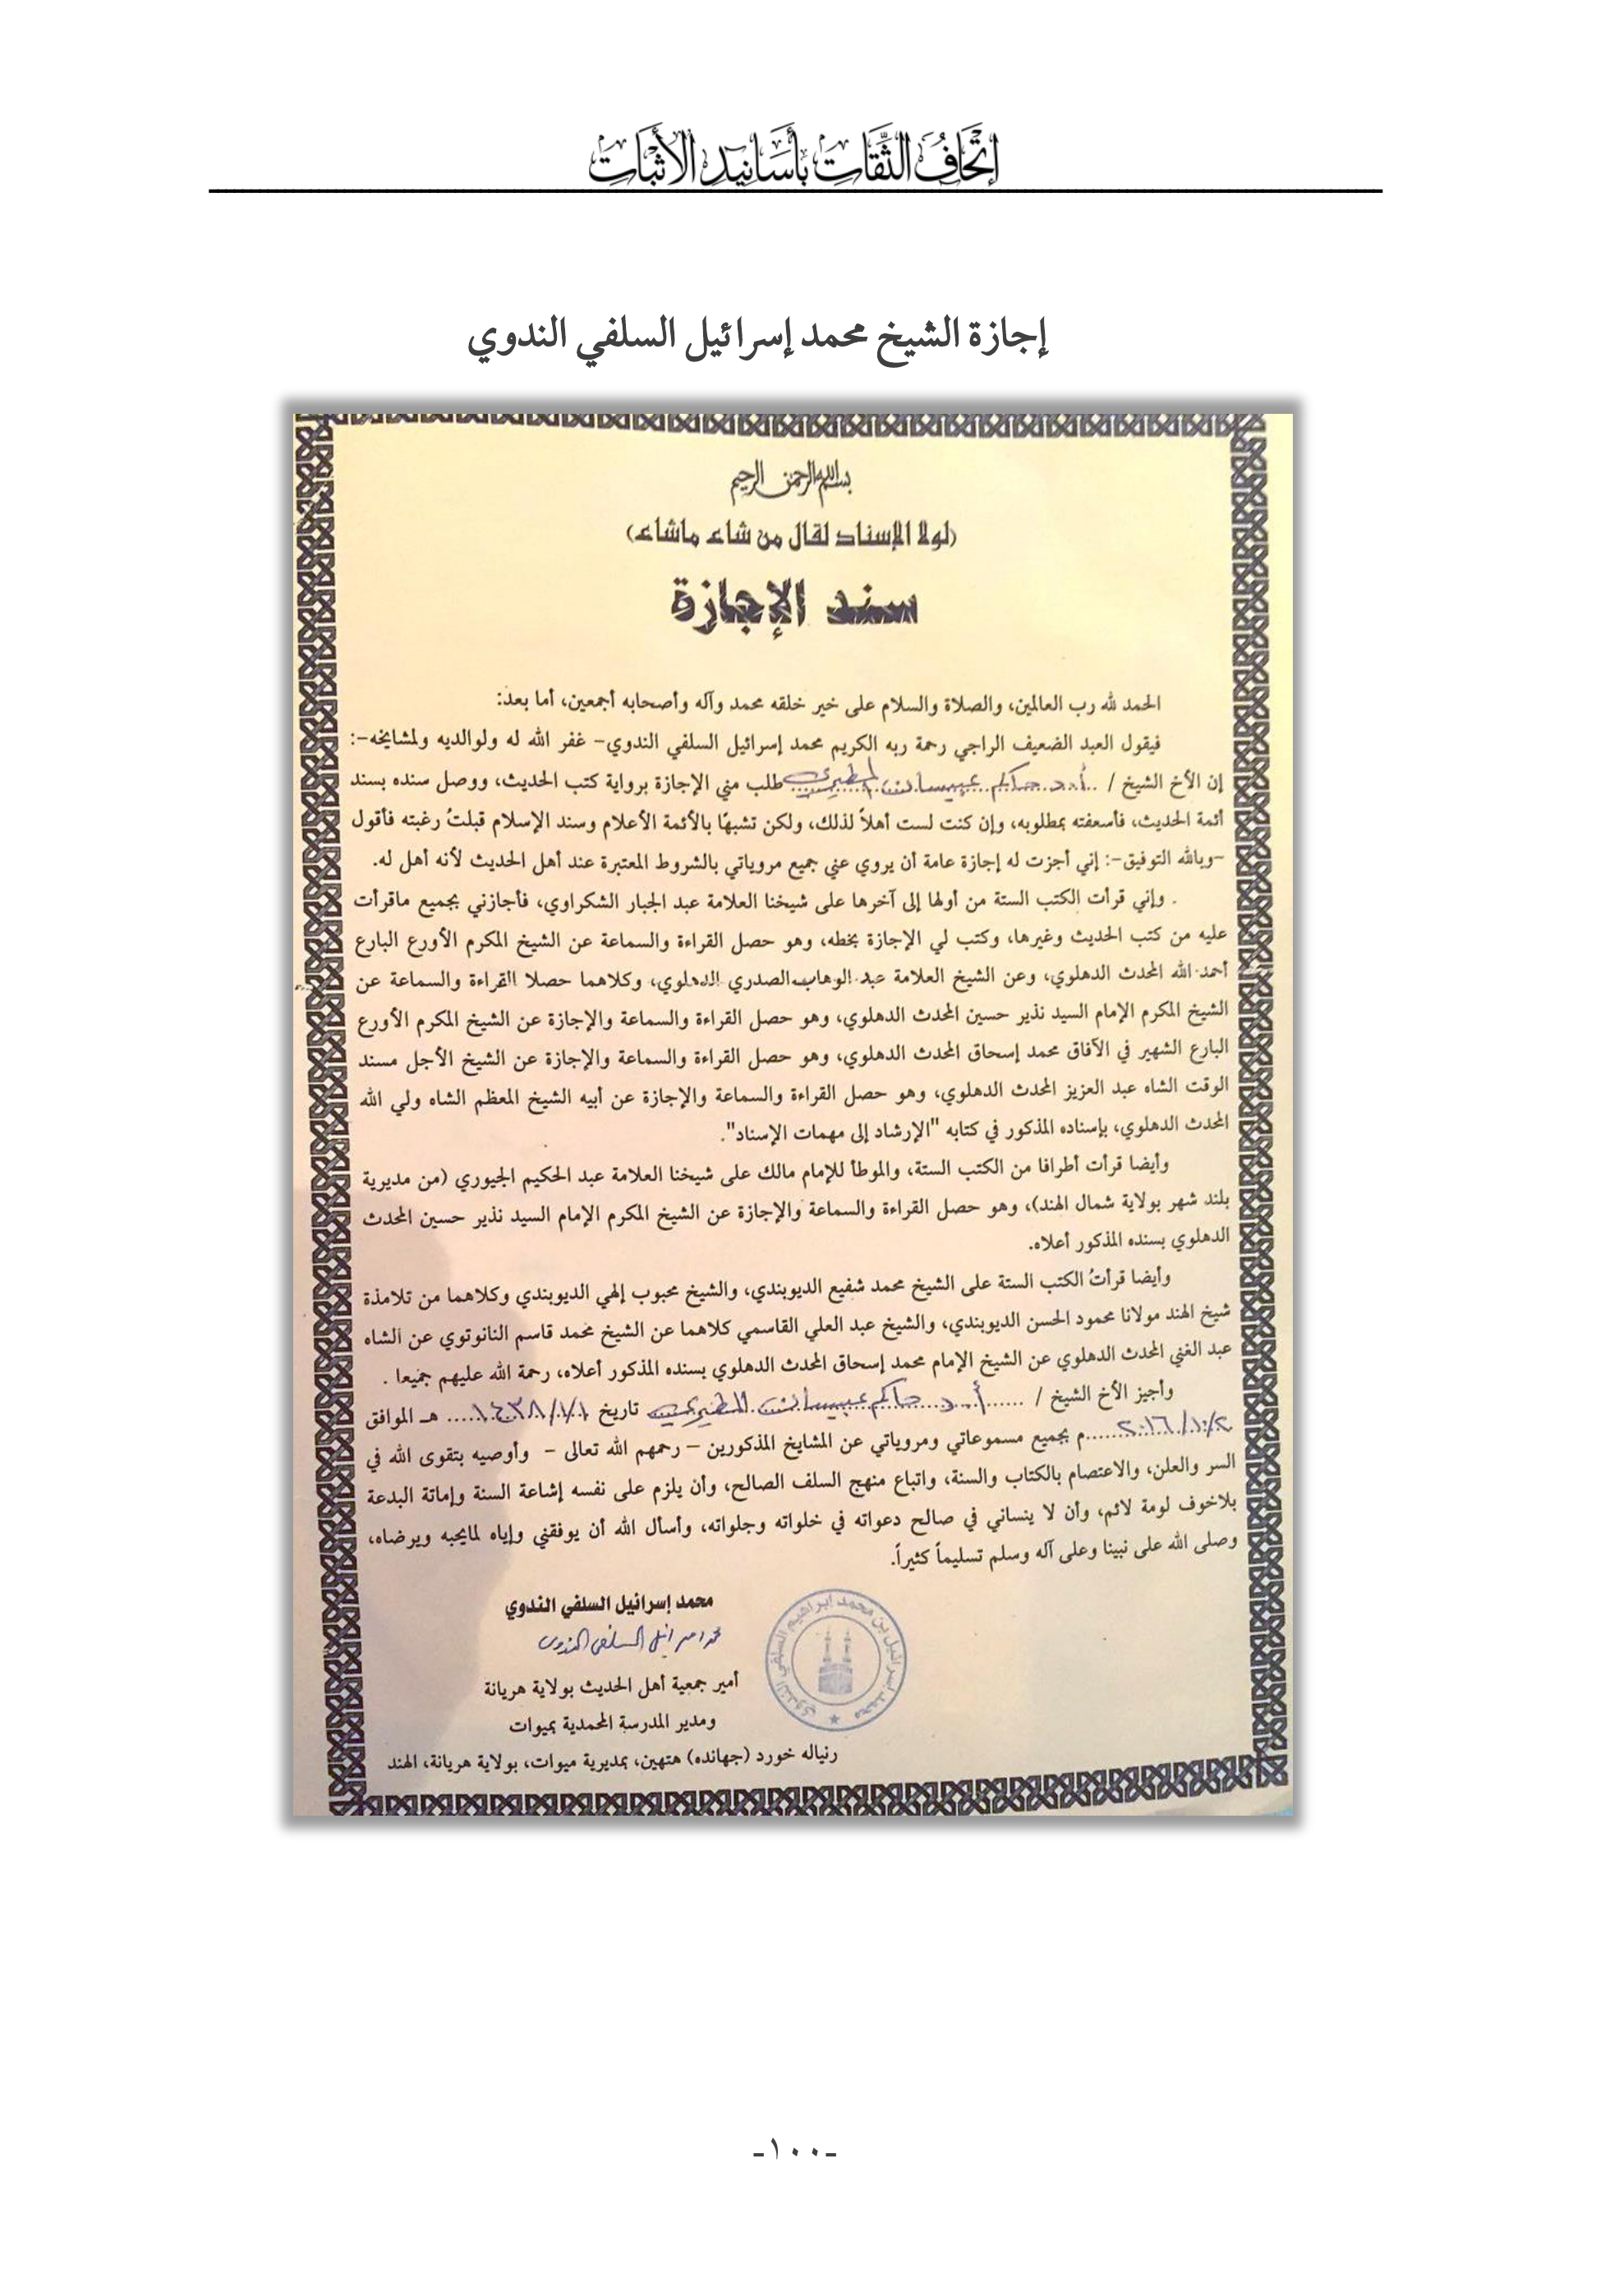 إِتْحَافُ الثِّقَاتِ بِأَسَانِيدِ الأَثْبَاتِ
إجازة الشيخ محمد إسرائيل السلفي الندوي
بسم الله الرحمن الرحيم
(لولا الإسناد لقال من شاء ماشاء)
سند الإجازة
الحمد لله رب العالمين، والصلاة والسلام على خير خلقه محمد وآله وأصحابه أجمعين، أما بعد:
فيقول العبد الضعيف الراجي رحمة ربه الكريم محمد إسرائيل السلفي الندوي– غفر الله له ولوالديه ولمشايخه–:
إن الأخ الشيخ / أ.د حاكم عبيسان المطيري طلب مني الإجازة برواية كتب الحديث، ووصل سنده بسند
أئمة الحديث، فأسعفته بمطلوبه، وإن كنت لست أهلاً لذلك، ولكن تشبهًا بالأئمة الأعلام وسند الإسلام قبلتُ رغبته فأقول
–وبالله التوفيق–: إني أجزت له إجازة عامة أن يروي عني جميع مروياتي بالشروط المعتبرة عند أهل الحديث لأنه أهل له.
وإني قرأت الكتب الستة من أولها إلى آخرها على شيخنا العلامة عبد الجبار الشكراوي، فأجازني بجميع ماقرأت
عليه من كتب الحديث وغيرها، وكتب لي الإجازة بخطه، وهو حصل القراءة والسماعة عن الشيخ المكرم الأورع البارع
أحمد الله المحدث الدهلوي، وعن الشيخ العلامة عبد الوهاب الصدري الدهلوي، وكلاهما حصلا القراءة والسماعة عن
الشيخ المكرم الإمام السيد نذير حسين المحدث الدهلوي، وهو حصل القراءة والسماعة والإجازة عن الشيخ المكرم الأورع
البارع الشهير في الآفاق محمد إسحاق المحدث الدهلوي، وهو حصل القراءة والسماعة والإجازة عن الشيخ الأجل مسند
الوقت الشاه عبد العزيز المحدث الدهلوي، وهو حصل القراءة والسماعة والإجازة عن أبيه الشيخ المعظم الشاه ولي الله
المحدث الدهلوي، بإسناده المذكور في كتابه "الإرشاد إلى مهمات الإسناد".
وأيضا قرأت أطرافا من الكتب الستة، والموطأ للإمام مالك على شيخنا العلامة عبد الحكيم الجيوري (من مديرية
بلند شهر بولاية شمال الهند)، وهو حصل القراءة والسماعة والإجازة عن الشيخ المكرم الإمام السيد نذير حسين المحدث
الدهلوي بسنده المذكور أعلاه.
وأيضا قرأتُ الكتب الستة على الشيخ محمد شفيع الديوبندي، والشيخ محبوب إلهي الديوبندي وكلاهما من تلامذة
شيخ الهند مولانا محمود الحسن الديوبندي، والشيخ عبد العلي القاسمي كلاهما عن الشيخ محمد قاسم النانوتوي عن الشاه
عبد الغني المحدث الدهلوي عن الشيخ الإمام محمد إسحاق المحدث الدهلوي بسنده المذكور أعلاه، رحمة الله عليهم جميعا .
وأجيز الأخ الشيخ / أ.د حاكم عبيسان المطيري تاريخ ١٤٣٨/١/١ هـ الموافق
٢٠١٦/١٠/٢م بجميع مسموعاتي ومروياتي عن المشايخ المذكورين – رحمهم الله تعالى – وأوصيه بتقوى الله في
السر والعلن، والاعتصام بالكتاب والسنة، واتباع منهج السلف الصالح، وأن يلزم على نفسه إشاعة السنة وإماتة البدعة
بلاخوف لومة لائم، وأن لا ينساني في صالح دعواته في خلواته وجلواته، وأسأل الله أن يوفقني وإياه لمايحبه ويرضاه،
وصلى الله على نبينا وعلى آله وسلم تسليماً كثيراً.
محمد إسرائيل السلفي الندوي
محمد اسرائيل السلفي الندوي
محمد اسرائيل بن محمد ابراهيم السلفي الندوي
أمير جمعية أهل الحديث بولاية هريانة
ومدير المدرسة المحمدية بميوات
رنياله خورد (جهانده) هتهين، بمديرية ميوات، بولاية هريانة، الهند
-١٠٠-